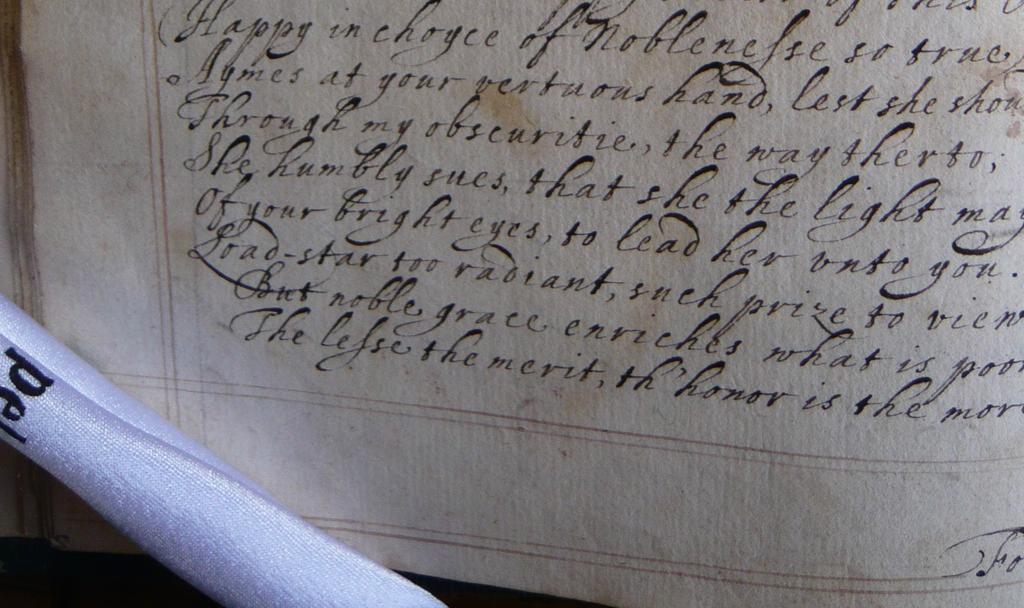 of this
Happy in choyce of Noblenesse so true,
Aymes at your vertuous hand, lest she shou
Through my obscuritie, the way therto;
She humbly sues, that she the light may
Of your bright eyes, to lead her vnto you.
Load-star too radiant, such prize to view
But noble grace enriches what is poor
The lesse the merit, th'honor is the mor
Fo